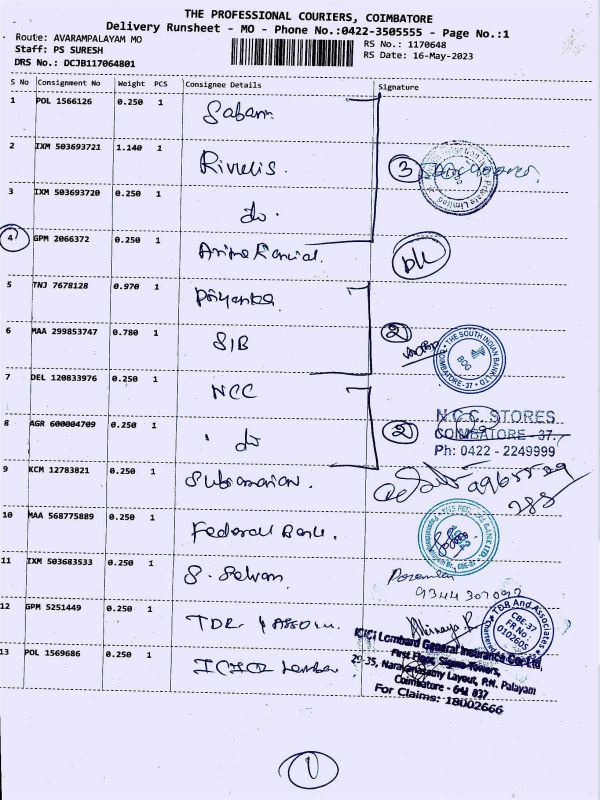 THE PROFESSIONAL COURIERS, COIMBATORE
Delivery Runsheet - MO - Phone No.:0422-3505555 - Page No.:1
Route: AVARAMPALAYAM MO
Staff: PS SURESH
DRS No.: DCJB117064801
RS No.: 1170648
RS Date: 16-May-2023
S No Consignment No Weight PCS Consignee Details Signature
1 POL 1566126 0.250 1 Sabari
2 IXM 503693721 1.140 1 Rivulis.
3 IXM 503693720 0.250 1 do.
3
Private Limited
4 GPM 2066372 0.250 1
5 TNJ 7678128 0.970 1 Priyanka
6 MAA 299853747 0.780 1 SIB
2
THE SOUTH INDIAN BANK LTD
COIMBATORE-37
BOG
7 DEL 120833976 0.250 1 NCC
8 AGR 600004709 0.250 1 do
2
N.C.C. STORES
COIMBATORE - 37.
Ph: 0422 - 2249999
9 KCM 12783821 0.250 1 Subramanian.
10 MAA 568775889 0.250 1 Federal Bank.
THE FEDERAL BANK LTD.
11 IXM 503683533 0.250 1 S. Selvan
12 GPM 5251449 0.250 1 TDR & Assou.
Abinaya R
TDB And Associates
CBE-37
FR No.
010260S
13 POL 1569686 0.250 1 ICICI Lombar
ICICI Lombard General Insurance Co. Ltd,
First Floor, Sigma Towers,
29-35, Narayanasamy Layout, P.N. Palayam
Coimbatore - 641 037
For Claims: 18002666
1